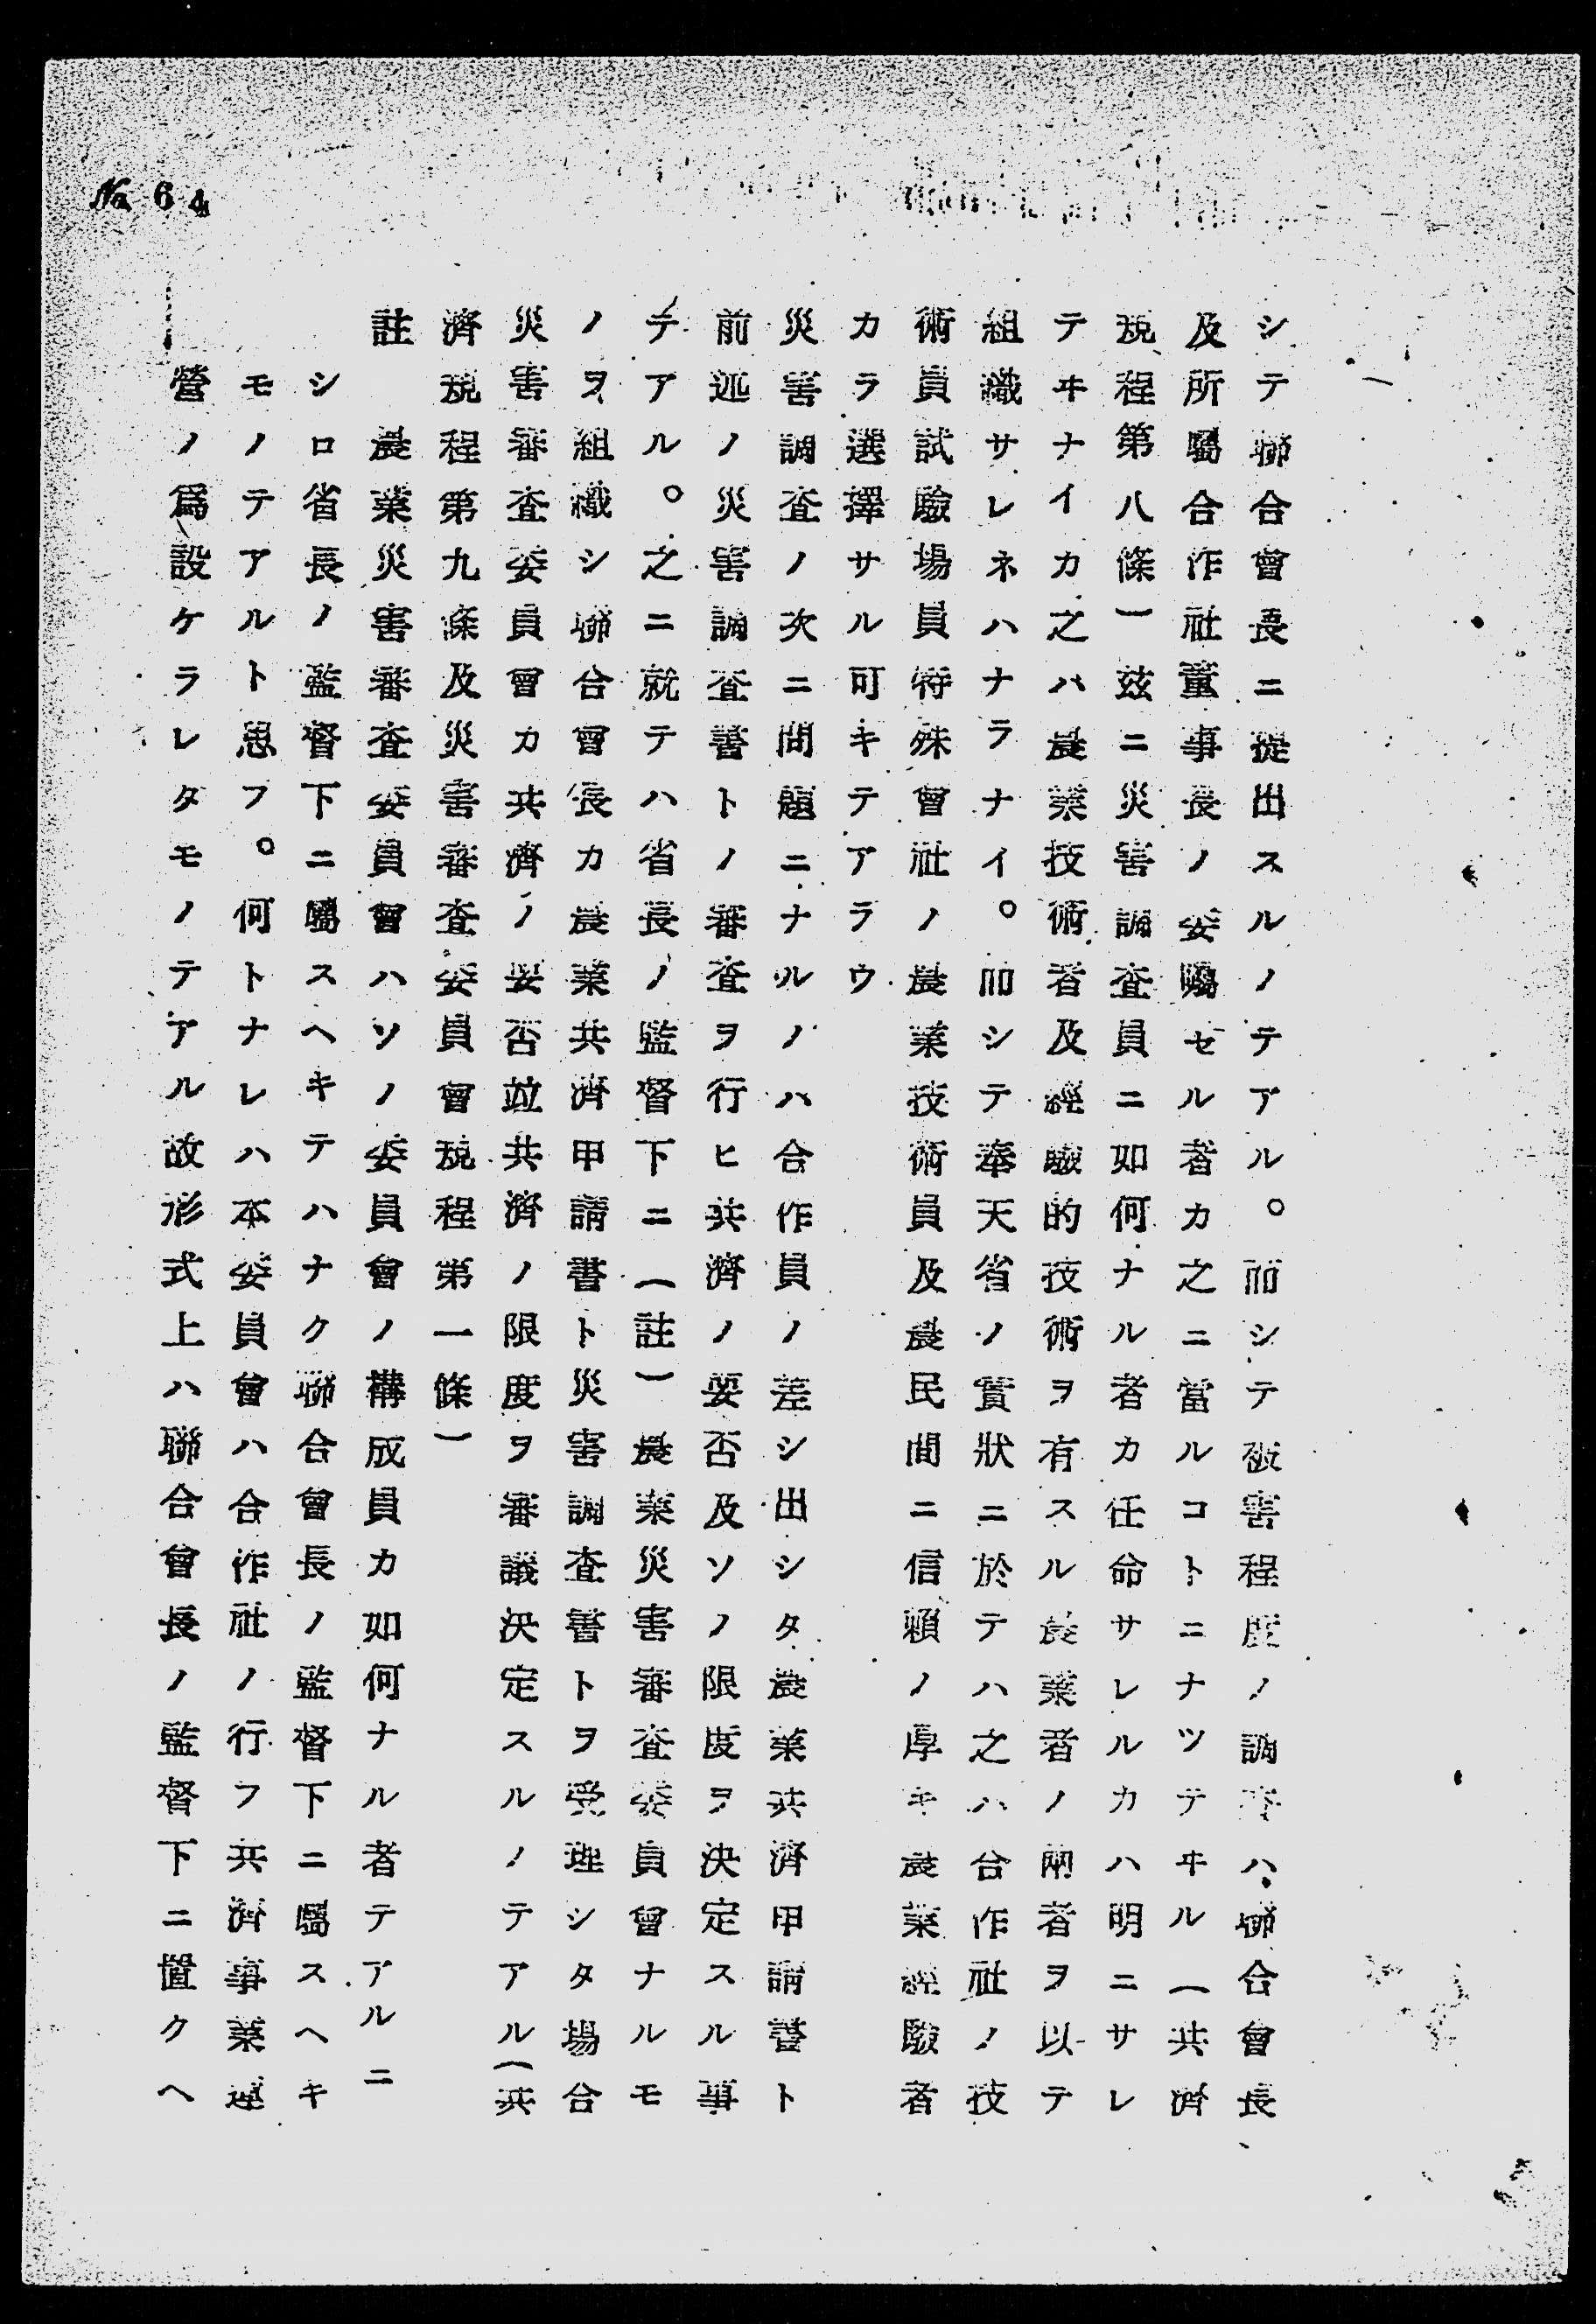 No. 64
シテ聯合會長ニ提出スルノテアル。而シテ被害程度ノ調査ハ聯合會長
及所屬合作社董事長ノ委囑セル者カ之ニ當ルコトニナツテヰル（共濟
規程第八條）玆ニ災害調査員ニ如何ナル者カ任命サレルカハ明ニサレ
テヰナイカ之ハ農業技術者及經驗的技術ヲ有スル農業者ノ兩者ヲ以テ
組織サレネハナラナイ。而シテ奉天省ノ實狀ニ於テハ之ハ合作社ノ技
術員試驗場員特殊會社ノ農業技術員及農民間ニ信賴ノ厚キ農業經驗者
カラ選擇サル可キテアラウ
災害調査ノ次ニ問題ニナルノハ合作員ノ差シ出シタ農業共濟申請書ト
前述ノ災害調査書トノ審査ヲ行ヒ共濟ノ要否及ソノ限度ヲ決定スル事
テアル。之ニ就テハ省長ノ監督下ニ（註）農業災害審査委員會ナルモ
ノヲ組織シ聯合會長カ農業共濟申請書ト災害調査書トヲ受理シタ場合
災害審査委員會カ共濟ノ要否竝共濟ノ限度ヲ審議決定スルノテアル（共
濟規程第九條及災害審査委員會規程第一條）
註　農業災害審査委員會ハソノ委員會ノ構成員カ如何ナル者テアルニ
シロ省長ノ監督下ニ屬スヘキテハナク聯合會長ノ監督下ニ屬スヘキ
モノテアルト思フ。何トナレハ本委員會ハ合作社ノ行フ共濟事業運
營ノ爲設ケラレタモノテアル故形式上ハ聯合會長ノ監督下ニ置クヘ